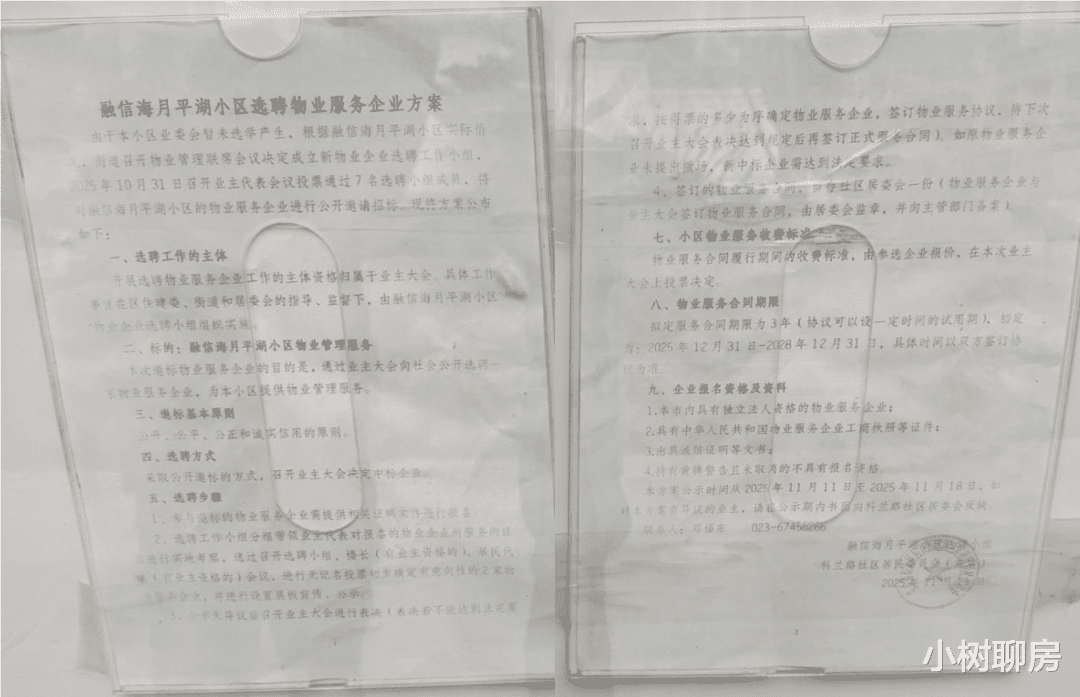 融信海月平湖小区选聘物业服务企业方案
由于本小区业委会暂未选举产生，根据融信海月平湖小区实际情
况，街道召开物业管理联席会议决定成立新物业企业选聘工作小组，
2025年10月31日召开业主代表会议投票通过7名选聘小组成员，将
对融信海月平湖小区的物业服务企业进行公开邀请招标。现将方案公布
如下：
一、选聘工作的主体
开展选聘物业服务企业工作的主体资格归属于业主大会。具体工作
事宜在区住建委、街道和居委会的指导、监督下，由融信海月平湖小区
物业企业选聘小组组织实施。
二、标的：融信海月平湖小区物业管理服务
本次邀标物业服务企业的目的是，通过业主大会向社会公开选聘一
家物业服务企业，为本小区提供物业管理服务。
三、邀标基本原则
公开、公平、公正和诚实信用的原则。
四、选聘方式
采取公开邀标的方式，召开业主大会决定中标企业。
五、选聘步骤
1、参与邀标的物业服务企业需提供相关证明文件进行报名。
2、选聘工作小组分组带领业主代表对报名的物业企业所服务的楼
进行实地考察，通过召开选聘小组、楼长（有业主资格的）、居民代
表（有业主资格的）会议，进行无记名投票初步确定有意向性的2家物
业服务企业，并进行设置展板宣传、公示。
3、公示无异议后召开业主大会进行表决（表决若不能达到法定要
1
求，按得票的多少为序确定物业服务企业，签订物业服务协议，待下次
召开业主大会表决达到规定后再签订正式服务合同）。如原物业服务企
业未提出撤场，新中标企业需达到法定要求。
4、签订的物业服务合同，应存社区居委会一份（物业服务企业与
业主大会签订物业服务合同，由居委会监章，并向主管部门备案）
七、小区物业服务收费标准
物业服务合同履行期间的收费标准，由参选企业报价，在本次业主
大会上投票决定。
八、物业服务合同期限
拟定服务合同期限为3年（协议可以设一定时间的试用期），初定
为：2025年12月31日-2028年12月31日，具体时间以双方签订协
议为准。
九、企业报名资格及资料
1.本市内具有独立法人资格的物业服务企业；
2.具有中华人民共和国物业服务企业工商执照等证件；
3.出具诚信证明等文书；
4.持有黄牌警告且未取消的不具有报名资格。
本方案公示时间从2025年11月11日至2025年11月18日，如
对本方案有异议的业主，请在公示期内书面向科兰路社区居委会反映。
联系人：邓福东 023-67456266
融信海月平湖小区选聘小组
科兰路社区居民委员会（监章）
2025年11月
2
小树聊房